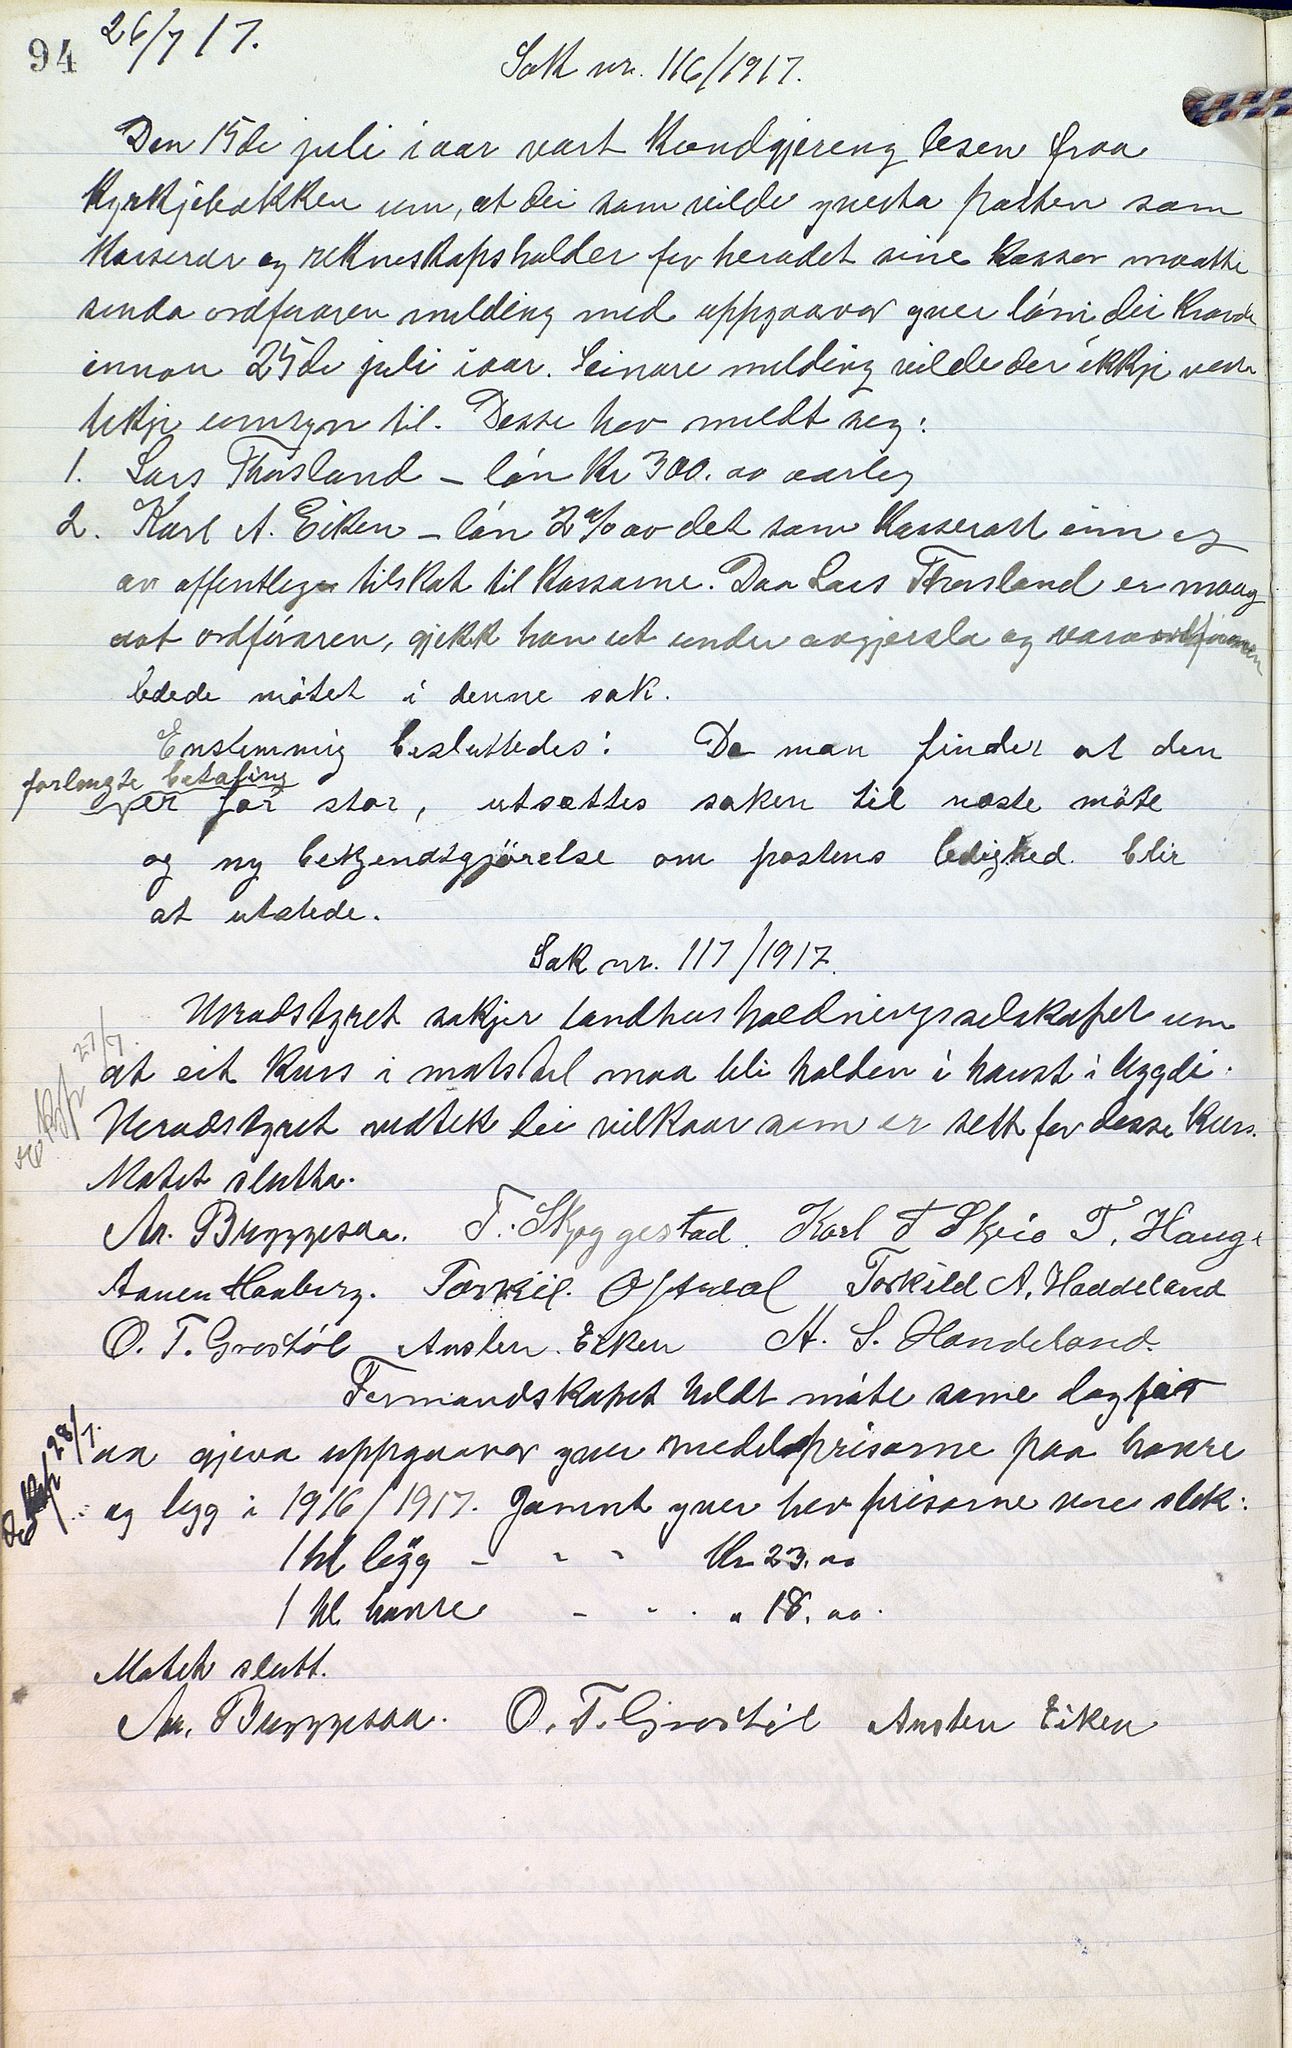 94 26/7 17.
Sak nr. 116/1917.
Den 15de juli i aar vart Kundgjering lesen fraa
Kyrkjebakken um, at dei som vilde ynsta posten som
Kasserar og rekneskapshalder for heradet sine Kassor maatte
senda ordføraren melding med uppgaavor yver løni dei Kravde
innan 25de juli i aar. Seinare melding vilde der ikkje verta
tekje umsyn til. Desse hev meldt seg:
1. Lars Thorsland – løn Kr 300. oo aarleg
2. Karl A. Eiken – løn 2% av det som Kasserast inn og
av offentlege tilskot til Kassarne. Daa Lars Thorsland er maag
aat ordføraren, gjekk han ut under avgjersla og varaordføraren
ledede møtet i denne sak.
Enstemmig besluttedes: Da man finder at den
forlangte betaling
er for stor, utsættes saken til næste møte
og ny bekjendtgjørelse om postens ledighed blir
at utstede.
Sak nr. 117/1917.
Heradstyret søkjer Landhusholdningsselskapet um
at eit Kurs i matstel maa bli halden i haust i bygdi.
27/7.
Heradstyret vedtek dei vilkaar som er sett for desse Kurs.
Møtet slutta.
An. Bryggesaa. T. Skeggestad. Karl T Skeie T. Haug.
Aanen Haaberg. Torkil. Oftedal Torkild A. Haddeland
O. T. Grostøl Austen. Eiken A. S. Handeland.
Formandskapet heldt møte same dag for
28/7.
aa gjeva uppgaavor yver medelprisarne paa havre
og bygg i 1916/1917. Jamnt yver hev prisarne vore slik:
1 hl bygg – " " Kr 23. oo
1 hl havre – " . " 18. oo.
Møtet slutt.
An. Bryggesaa. O. T. Grostøl Austen Eiken